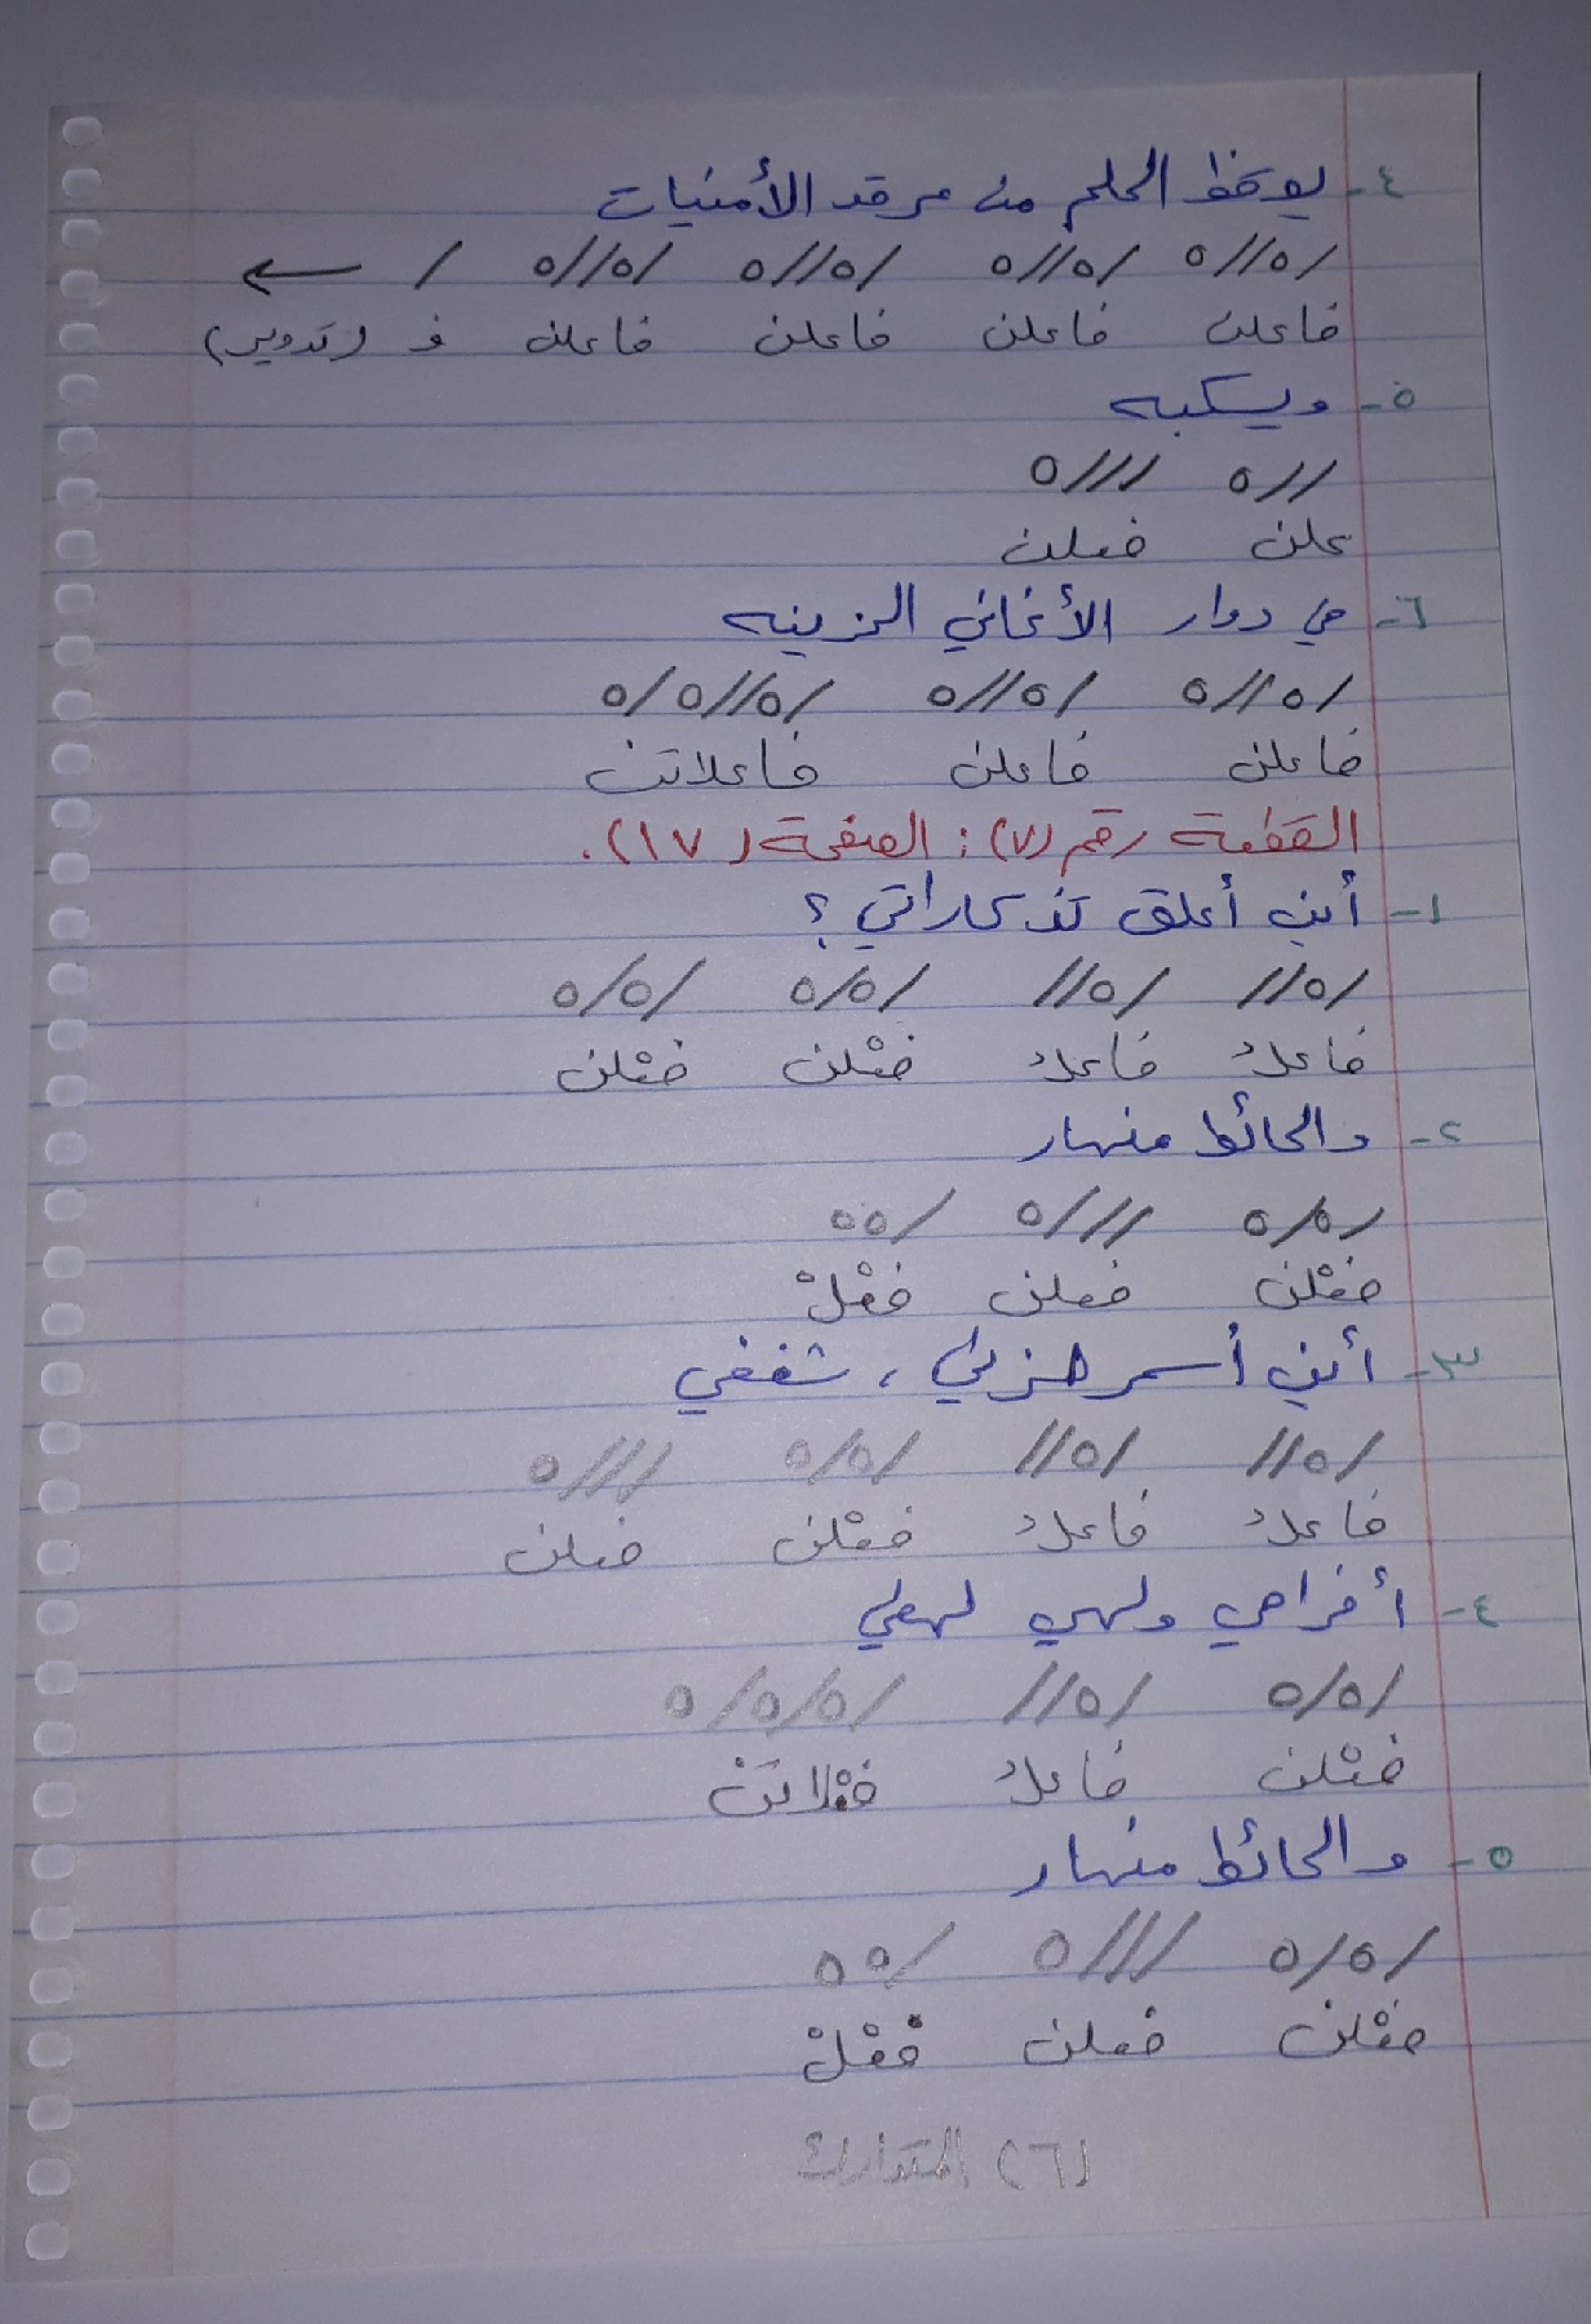 ٤- يوقظ الحلم من مرقد الأمنيات
/ه//ه /ه//ه /ه//ه /ه//ه / ←
فاعلن فاعلن فاعلن فاعلن ف (تدوير)
٥- ويسكبه
//ه ///ه
علن فعلن
٦- في دوار الأغاني الحزينه
/ه//ه /ه//ه /ه//ه/ه
فاعلن فاعلن فاعلاتن
القطعة رقم (٧): الصفحة (١٧).
١- أين أعلق تذكاراتي؟
/ه// /ه// /ه/ه /ه/ه
فاعلُ فاعلُ فعْلن فعْلن
٢- والحائط منهار
/ه/ه ///ه /هه
فعْلن فعلن فعْلْ
٣- أين أسمر حزني، شغفي
/ه// /ه// /ه/ه ///ه
فاعلُ فاعلُ فعْلن فعلن
٤- أفراحي ولهي لهفي
/ه/ه /ه// /ه/ه/ه
فعْلن فاعلُ فعْلاتن
٥- والحائط منهار
/ه/ه ///ه /هه
فعْلن فعلن فعْلْ
(٦) المتدارك